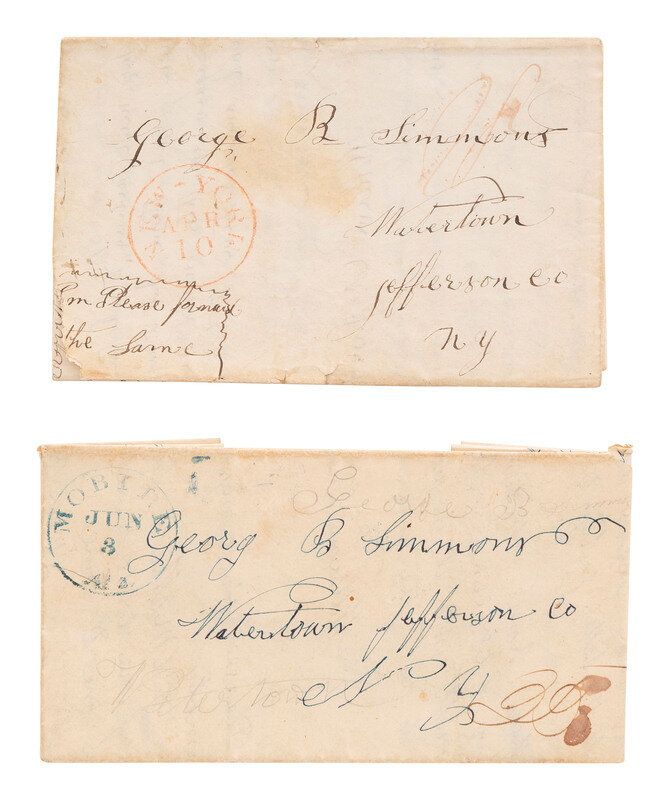 George B Simmons
NEW-YORK
APR
10
Watertown
Jefferson co
Pm Please forward
the Same
ny
MOBILE
JUN
3
Ala
George B
Georg B Simmons
Watertown Jefferson co
N Y 25
Watertown